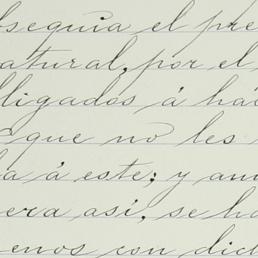 bsequia el pre
atural, por el
bligados á hac
que no les
ba á este; y aun
era así, se ha
enos con dich